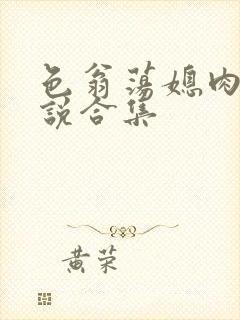 色翁荡媳肉
说合集
黄荣